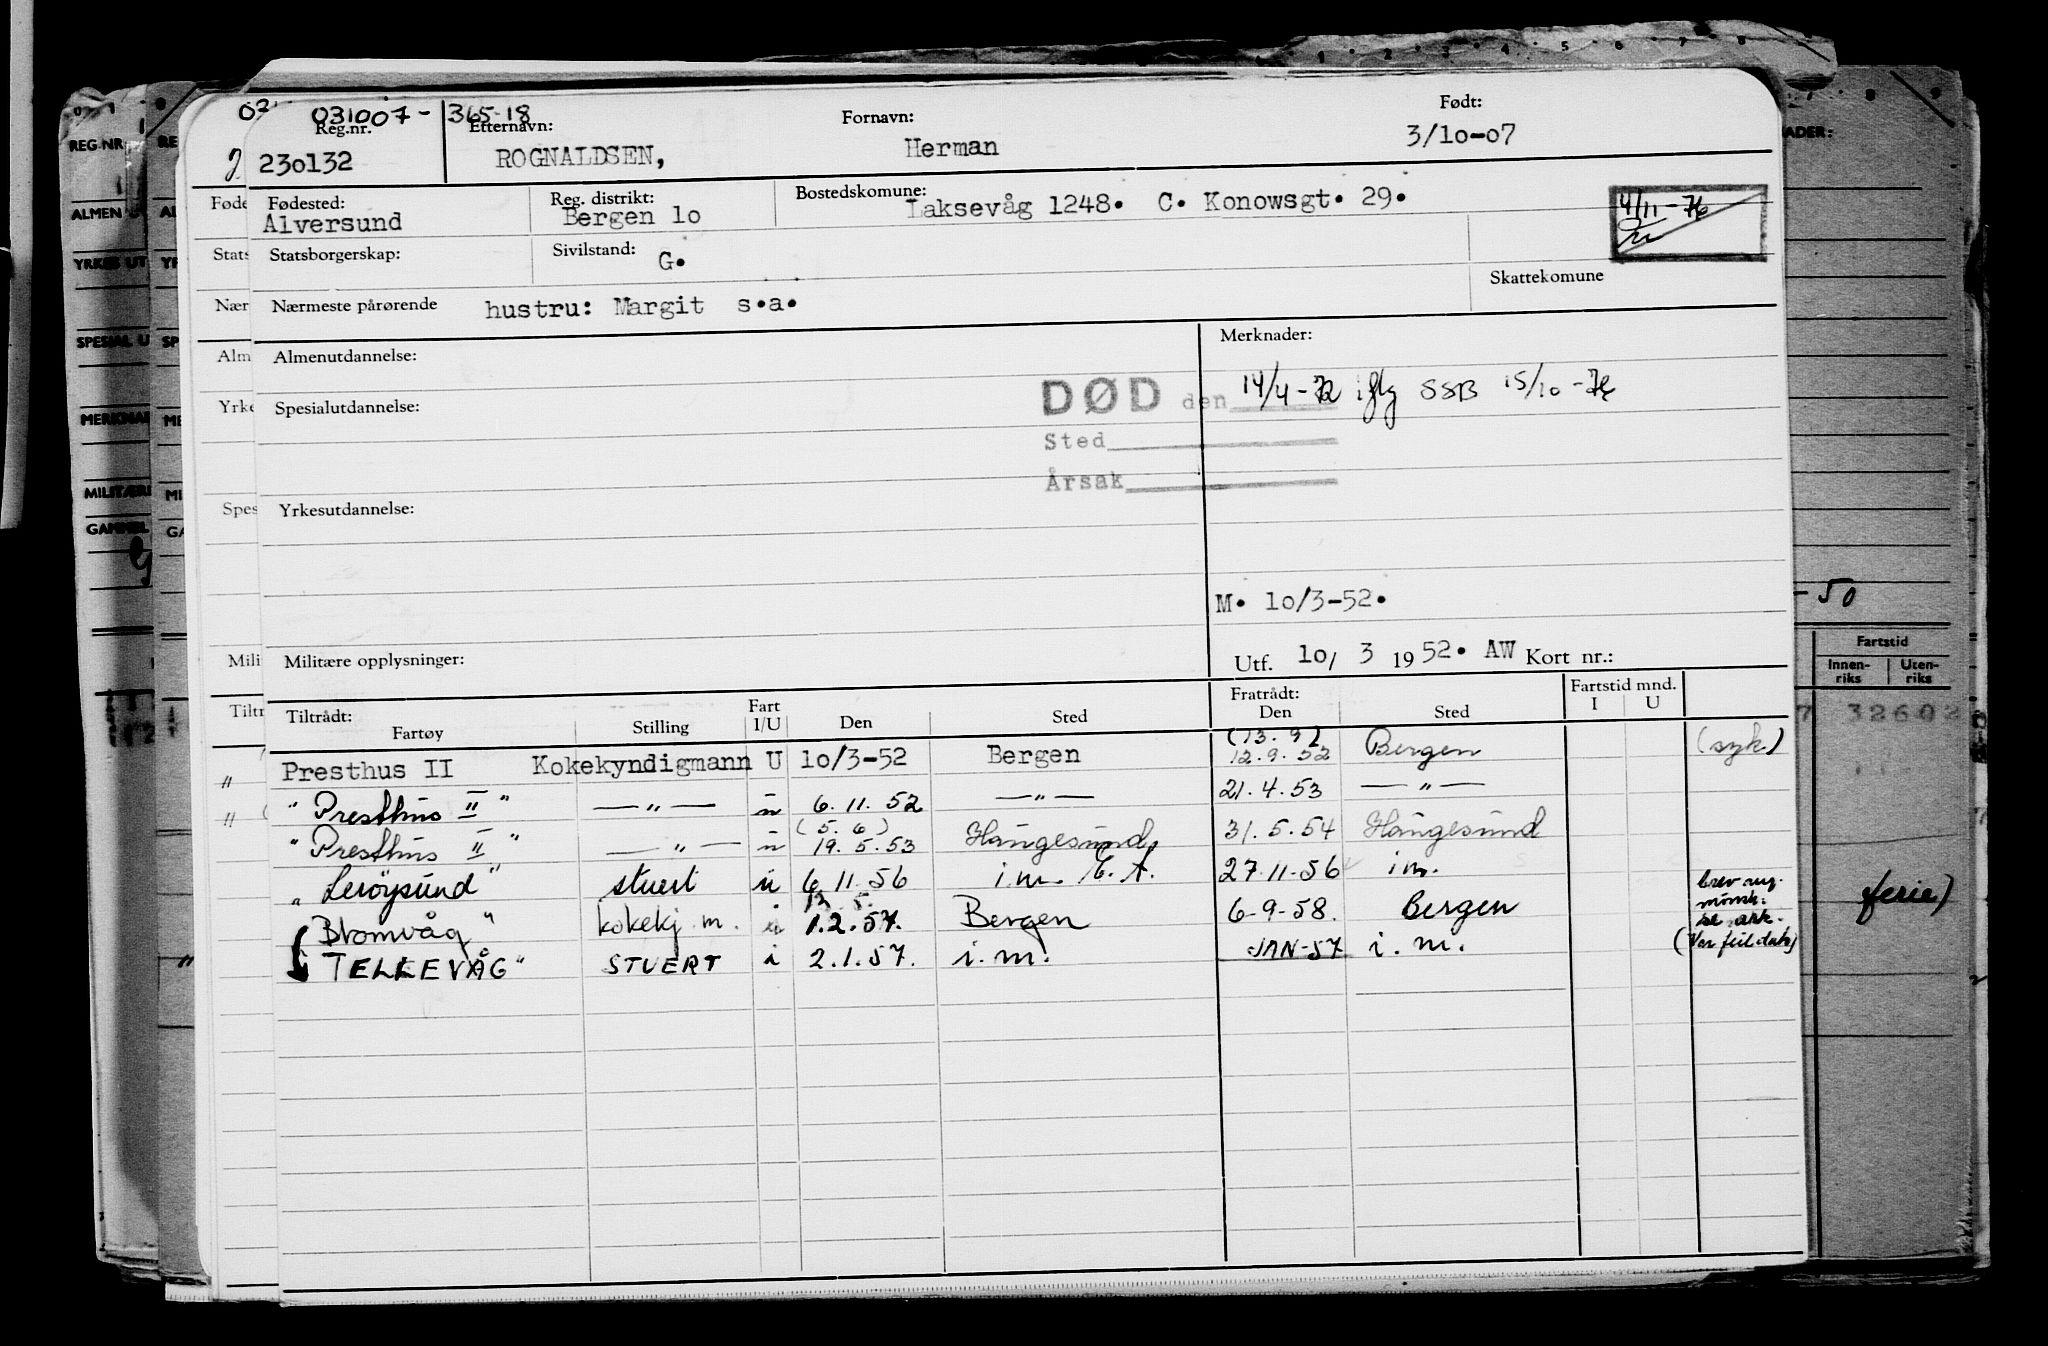 031007- 365-18
Reg.nr. Etternavn: Fornavn: Født:
230132 ROGNALDSEN, Herman 3/10-07
Fødested: Reg. distrikt: Bostedskomune:
Alversund Bergen 10 Laksevåg 1248. C. Konowsgt. 29.
4/11-76
Statsborgerskap: Sivilstand: G.
Skattekomune
Nærmeste pårørende hustru: Margit s.a.
Almenutdannelse: Merknader:
Spesialutdannelse: DØD den 14/4-72 iflg SSB 15/10-76
Sted
Årsak
Yrkesutdannelse:
M. 10/3-52.
Militære opplysninger: Utf. 10/ 3 1952. AW Kort nr.:
Tiltrådt: Fratrådt: Fartstid mnd.
Fartøy Stilling Fart I/U Den Sted Den Sted I U
Presthus II Kokekyndigmann U 10/3-52 Bergen (13.9) 12.9.52 Bergen (syk)
"Presthus II" —"— u 6.11.52 —"— 21.4.53 —"—
"Presthus II" —"— u (5.6) 19.5.53 Haugesund 31.5.54 Haugesund
"Lerøysund" stuert u 6.11.56 i m. E.A. 27.11-56 i m.
Blomvåg" kokekj. m. 1.2.57. Bergen 6-9-58. Bergen brev
"TELLEVÅG" STUERT i 2.1.57. i.m. JAN-57 i.m. (Var feil dato)
REG.NR
ALMEN
YRKES UT
SPESIAL U
MERKNAD
MILITÆRE
GAMMEL
-50
Fartstid
Innen-riks Uten-riks
32602
ferie)